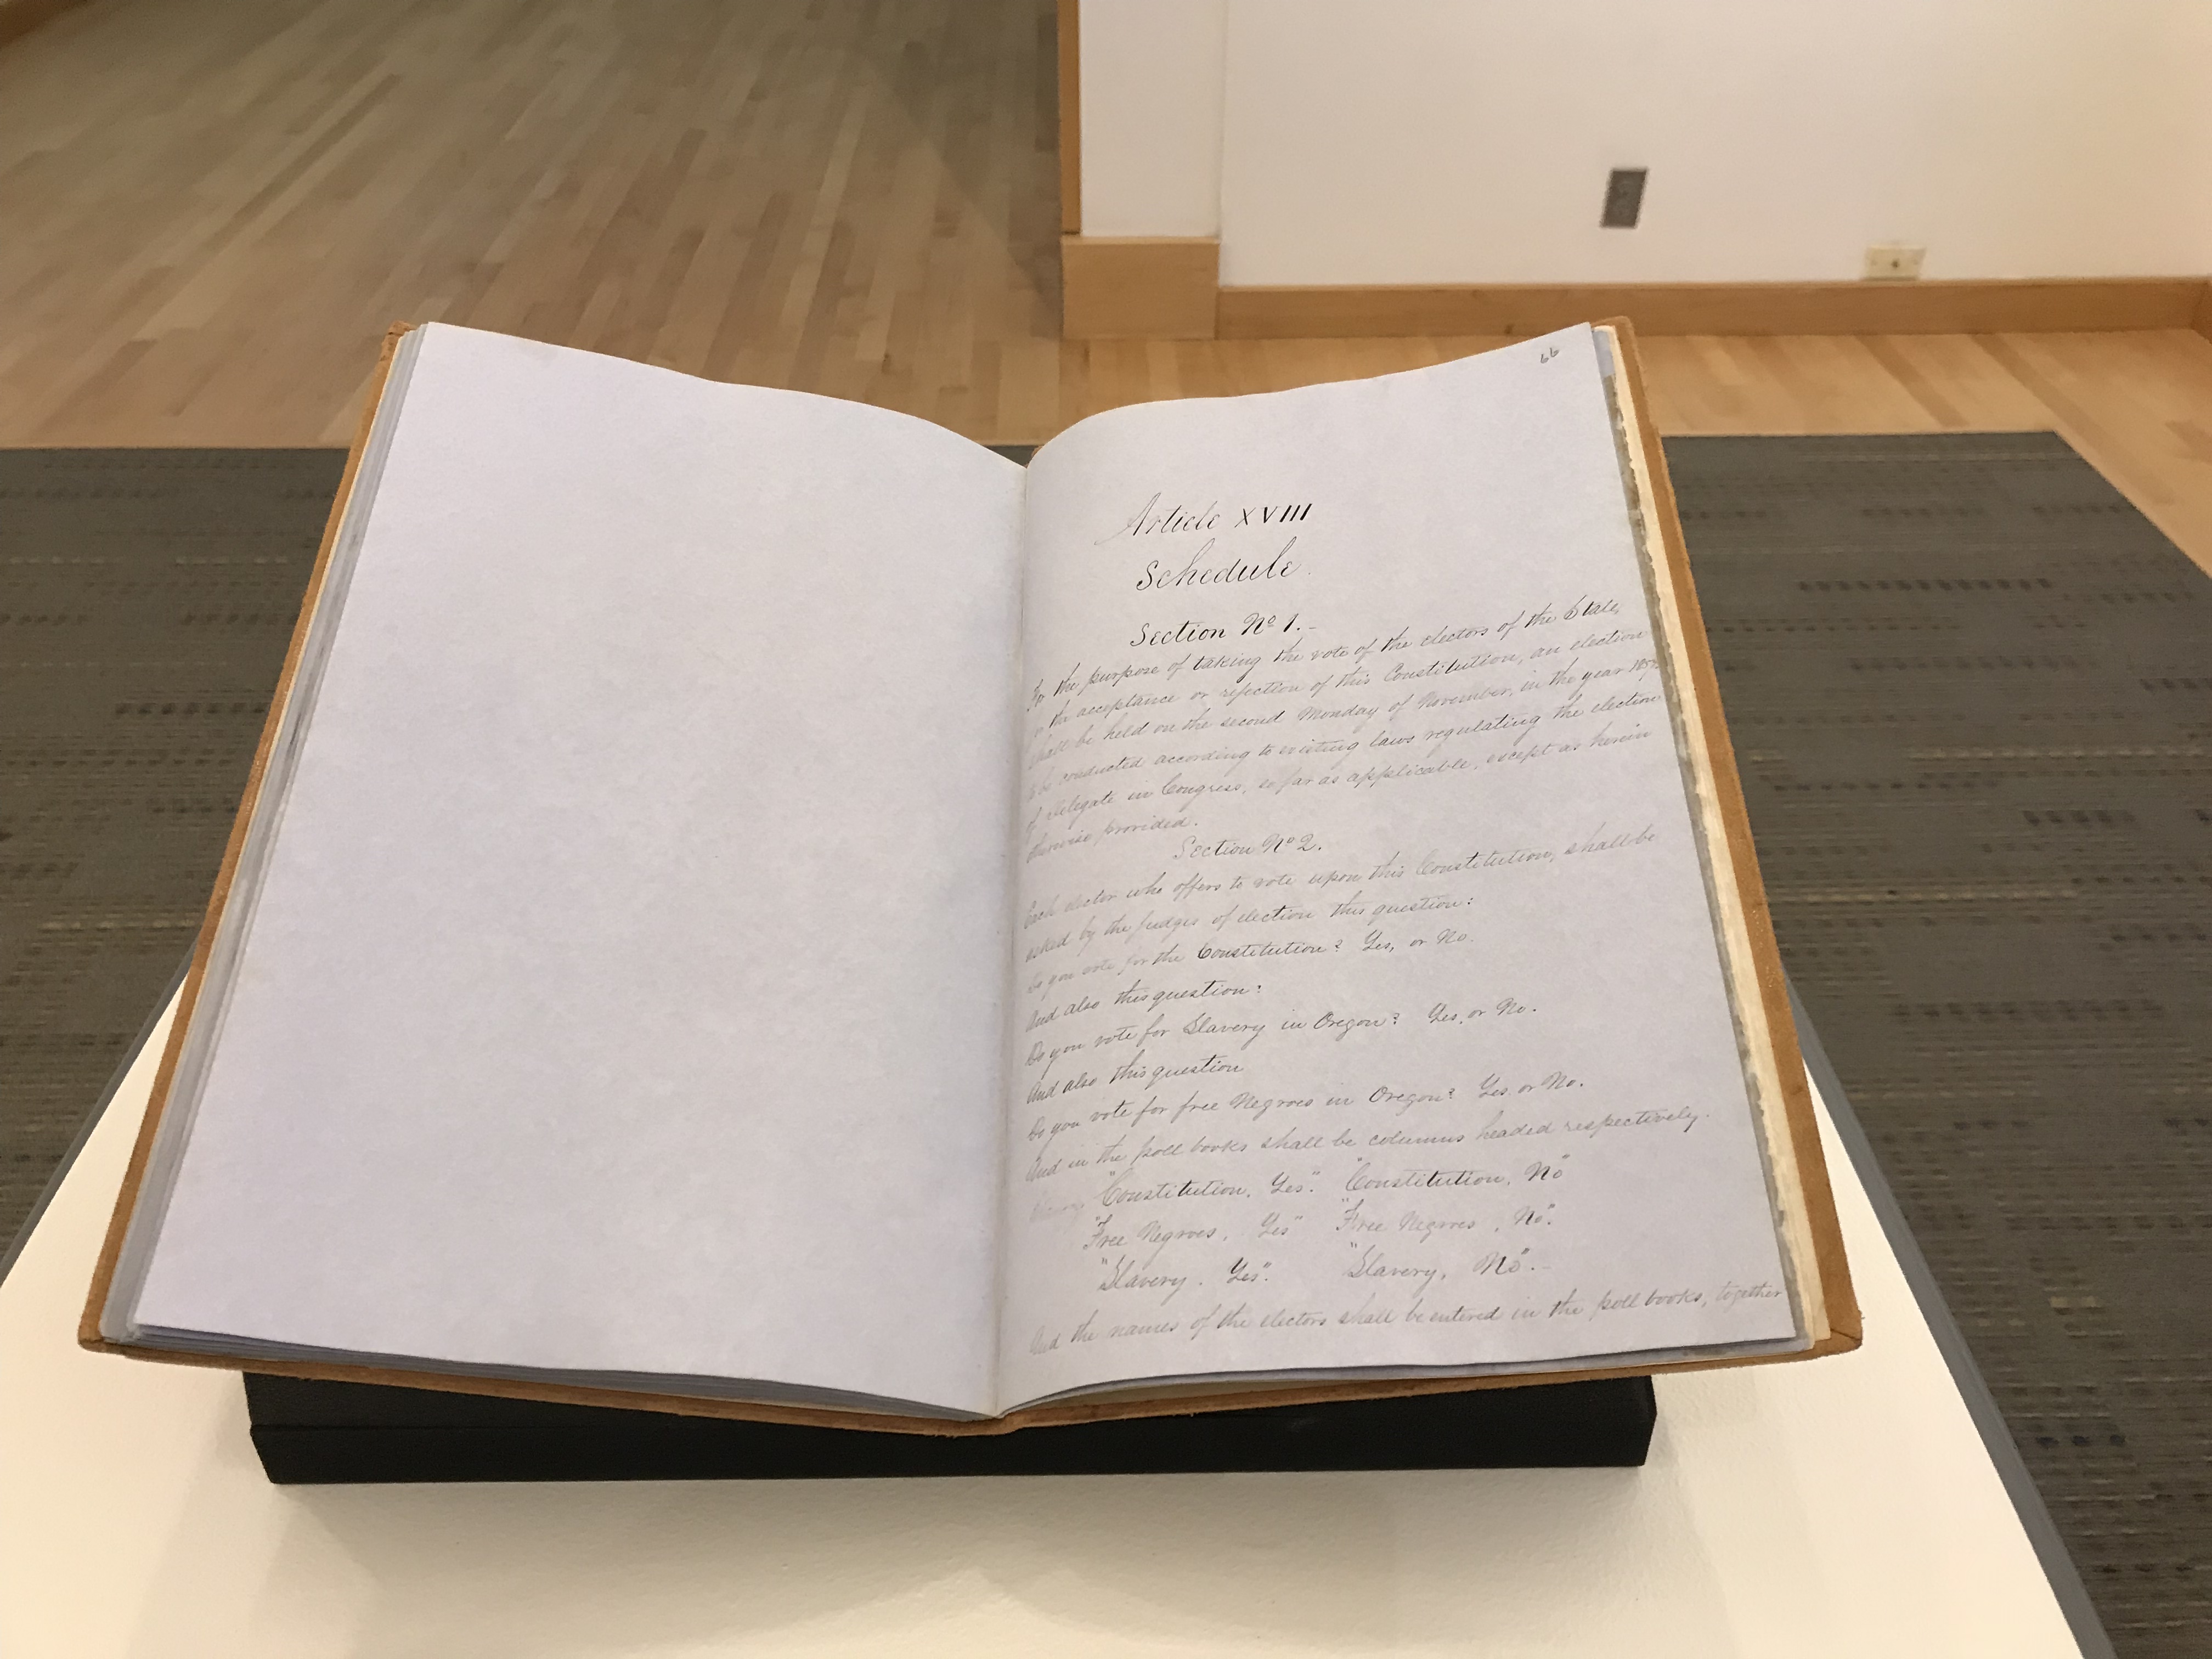 66
Article XVIII
Schedule.
Section No 1.-
For the purpose of taking the vote of the electors of the State,
or the acceptance or rejection of this Constitution, an election
shall be held on the second Monday of November, in the year 1857,
to be conducted according to existing laws regulating the election
of Delegate in Congress, so far as applicable, except as herein
otherwise provided.
Section No 2.
Each elector who offers to vote upon this Constitution, shall be
asked by the judges of election this question:
Do you vote for the Constitution? Yes, or No.
And also this question:
Do you vote for Slavery in Oregon? Yes, or No.
And also this question
Do you vote for free Negroes in Oregon? Yes. or No.
And in the poll books shall be columns headed respectively.
"Constitution, Yes." "Constitution, No"
"Free Negroes, Yes" "Free Negroes, No".
"Slavery. Yes". "Slavery, No".-
And the names of the electors shall be entered in the poll books, together